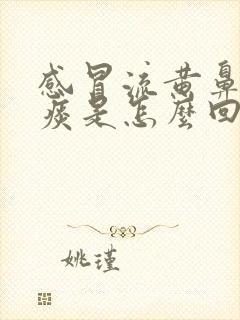 感冒流黄鼻
痰是怎麼回
姚瑾